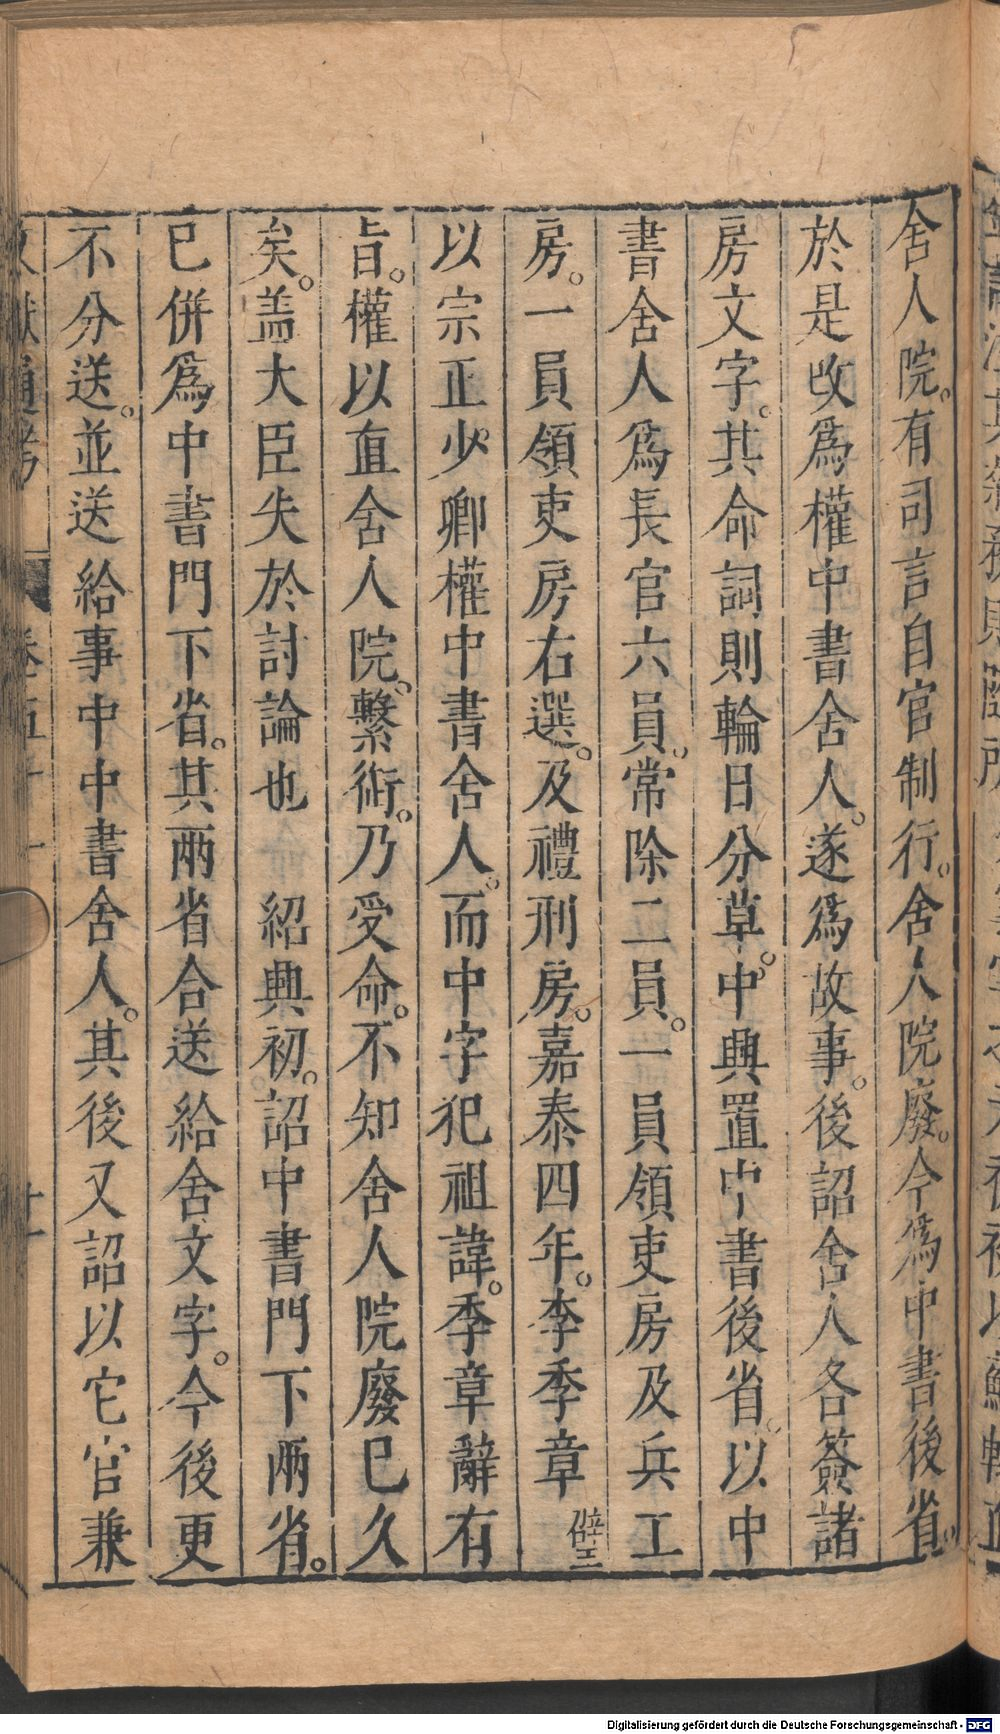 舍人院。有司言自官制行。舍人院廢。今爲中書後省。
於是改爲權中書舍人。遂爲故事。後詔舍人各簽諸
房文字。其命詞則輪日分草。中興置中書後省。以中
書舍人爲長官六員。常除二員。一員領吏房及兵工
房。一員領吏房右選。及禮刑房。嘉泰四年。李季章壁
以宗正少卿權中書舍人。而中字犯祖諱。季章辭有
旨。權以直舍人院。繫銜。乃受命。不知舍人院廢已久
矣。盖大臣失於討論也 紹興初。詔中書門下兩省。
已併爲中書門下省。其兩省合送給舍文字。今後更
不分送。並送給事中中書舍人。其後又詔以它官兼
文獻通考 卷五十一 廿一
Digitalisierung gefördert durch die Deutsche Forschungsgemeinschaft - DFG